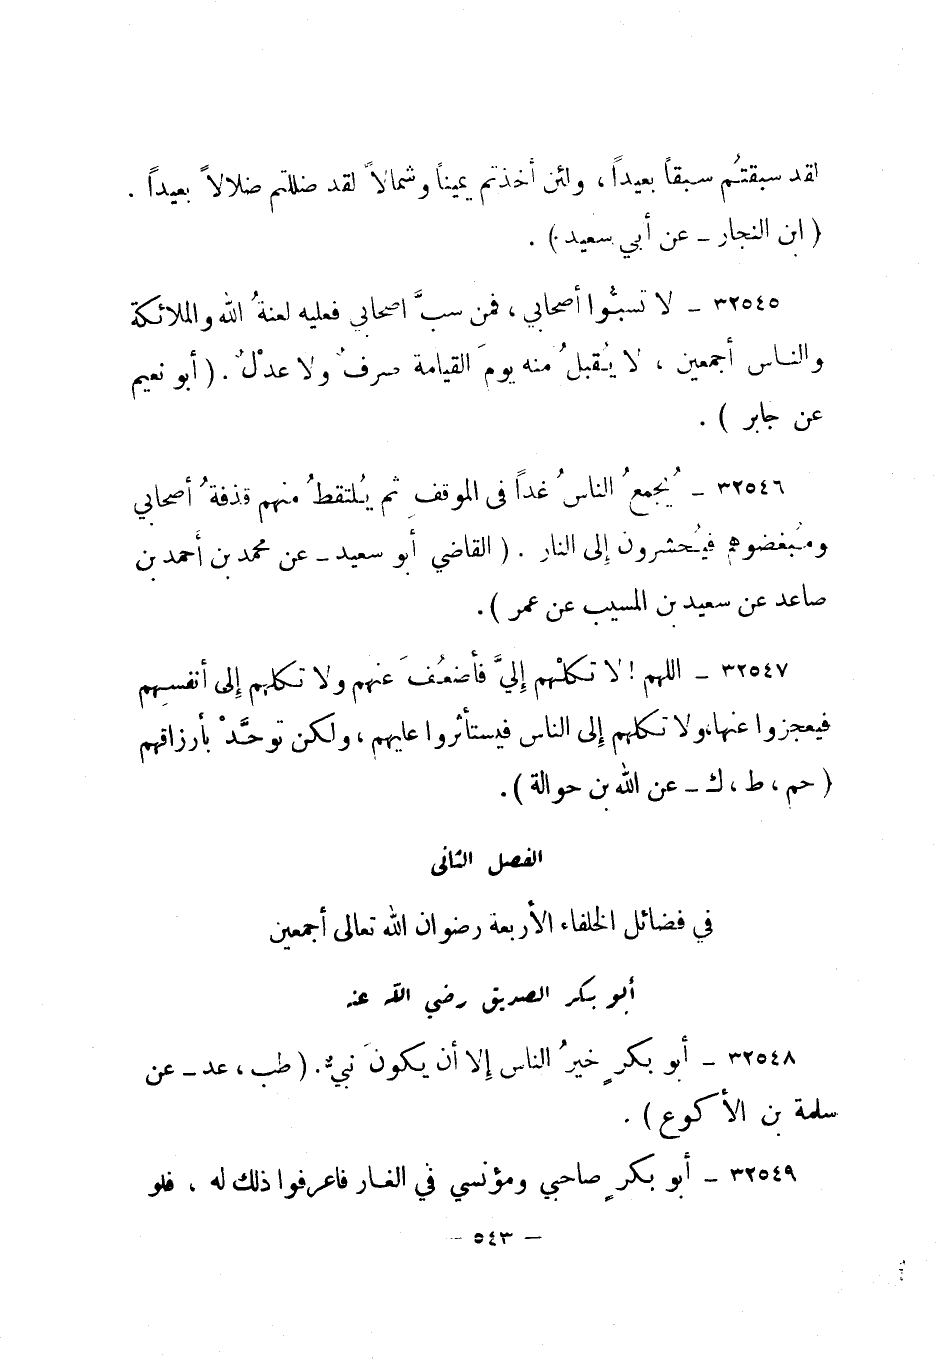 لقد سبقتُم سبقاً بعيداً ، ولئن أخذتم يميناً وشمالاً لقد ضللتم ضلالاً بعيداً .
( ابن النجار ــ عن أبي سعيد ) .
٣٢٥٤٥ ــ لا تسبُّوا أصحابي ، فمن سبَّ اصحابي فعليه لعنةُ الله والملائكة
والناس أجمعين ، لا يُقبلُ منه يومَ القيامة صرفٌ ولا عدْلٌ . ( أبو نعيم
عن جابر ) .
٣٢٥٤٦ ــ يُجمعُ الناسُ غداً في الموقفِ ثم يُلتقطُ منهم قذفةُ أصحابي
ومُبغضوهم فيُحشرون إلى النار . ( القاضي أبو سعيد ــ عن محمد بن أحمد بن
صاعد عن سعيد بن المسيب عن عمر ) .
٣٢٥٤٧ ــ اللهم ! لا تكلْهم إليَّ فأضعُفَ عنهم ولا تكلهم إلى أنفسِهم
فيعجزوا عنها،ولا تكلهم إلى الناس فيستأثروا عليهم ، ولكن توحَّدْ بأرزاقهم
( حم ، ط ، ك ــ عن الله بن حوالة ) .
الفصل الثانى
في فضائل الخلفاء الأربعة رضوان الله تعالى أجمعين
أبو بكر الصديق رضي الله عنه
٣٢٥٤٨ ــ أبو بكرٍ خيرُ الناس إلا أن يكونَ نبيٌّ . ( طب ، عد ــ عن
سلمة بن الأكوع ) .
٣٢٥٤٩ ــ أبو بكرٍ صاحبي ومؤنسي في الغار فاعرفوا ذلك له ، فلو
— ٥٤٣ —